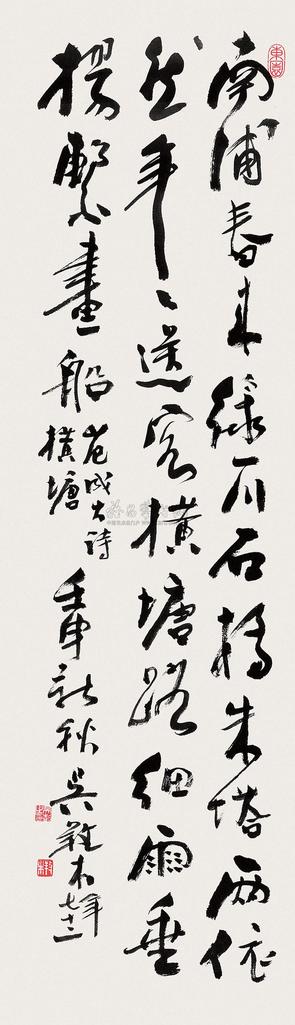 南浦春来綠一川石橋朱塔兩依
然年〻送客橫塘路細雨垂
楊繫畫船
范成大詩
橫塘
壬申新秋吳羖木年七十二